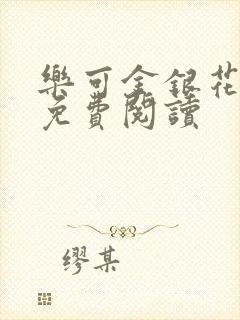 樂可金銀花
免費閱讀
繆某